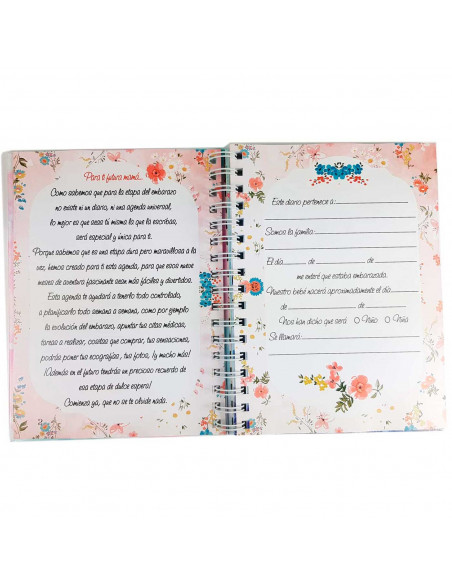 Para ti futura mamá...
Como sabemos que para la etapa del embarazo
no existe ni un diario, ni una agenda universal,
lo mejor es que seas tú misma la que la escribas,
será especial y única para ti.
Porque sabemos que es una etapa dura pero maravillosa a la
vez, hemos creado para ti esta agenda, para que esos nueve
meses de aventura fascinante sean más fáciles y divertidos.
Esta agenda te ayudará a tenerlo todo controlado,
a planificarlo todo semana a semana, como por ejemplo
la evolución del embarazo, apuntar tus citas médicas,
tareas a realizar, cositas que comprar, tus sensaciones,
podrás poner tus ecografías, tus fotos, ¡y mucho más!
¡Además en el futuro tendrás un precioso recuerdo de
esa etapa de dulce espera!
Comienza ya, que no se te olvide nada.
Este diario pertenece a:
Somos la familia:
El día de de
me enteré que estaba embarazada.
Nuestro bebé nacerá aproximadamente el día
de de
Nos han dicho que será Niño Niña
Se llamará